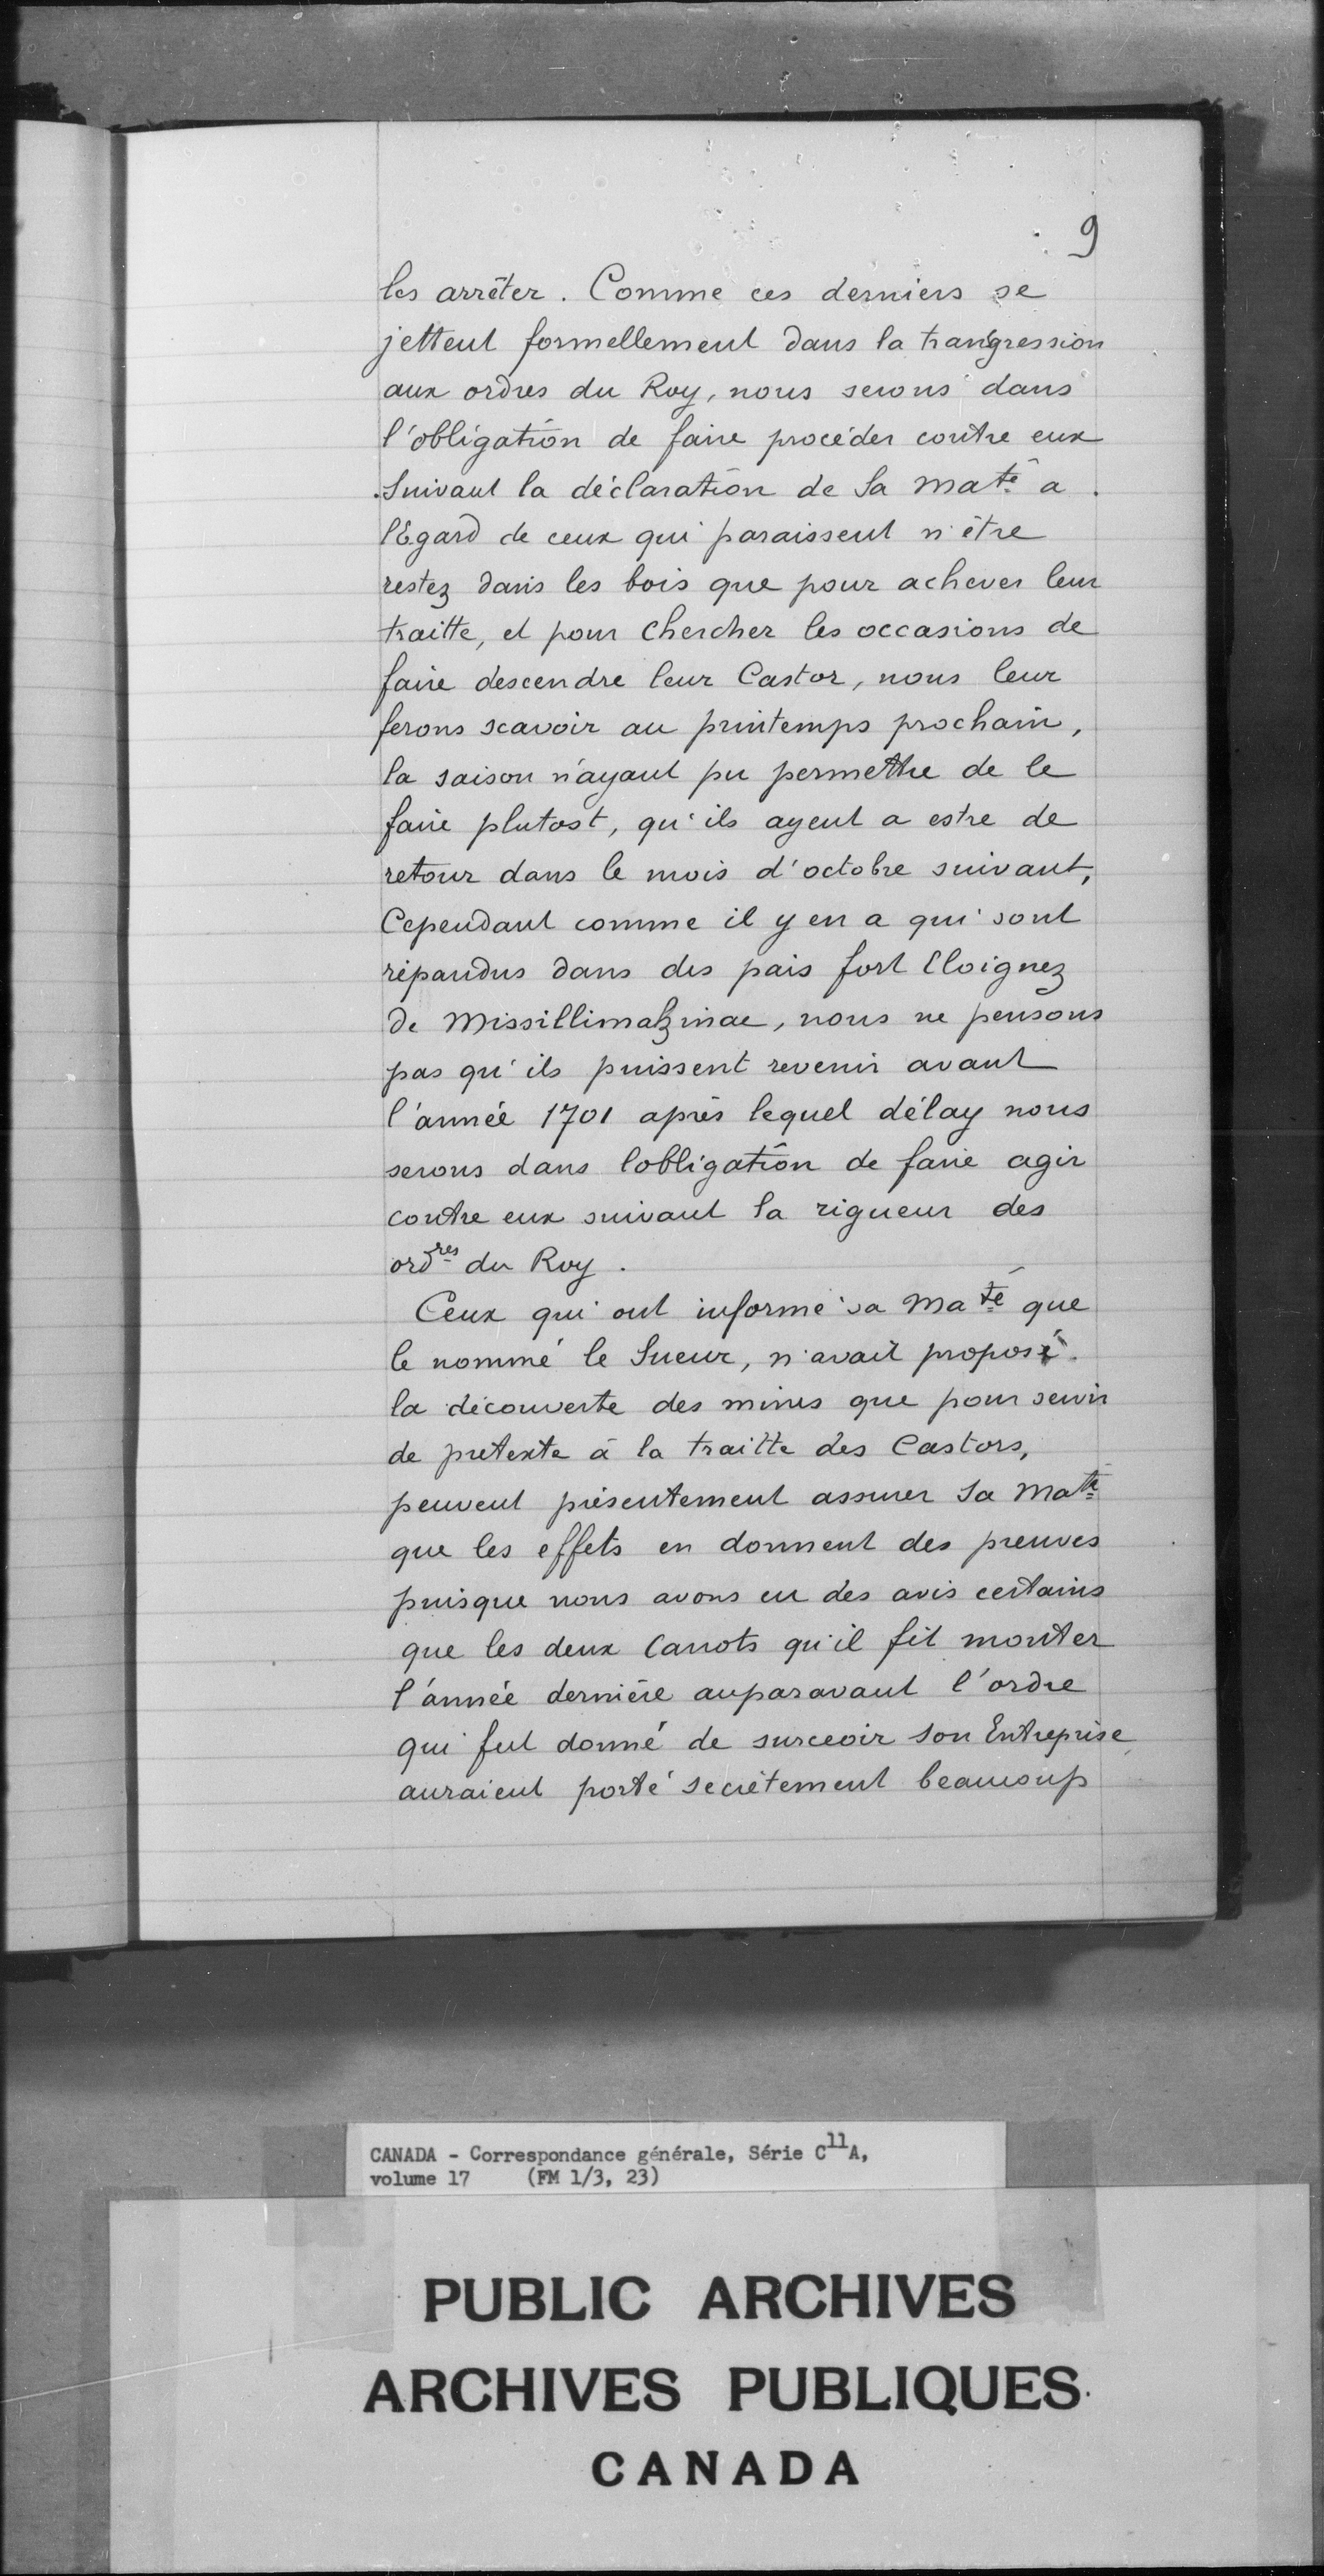 9
les arrêter. Comme ces derniers se
jettent formellement dans la trangression
aux ordres du Roy, nous serons dans
l'obligation de faire procéder contre eux
Suivant la déclaration de Sa Maté a
l'Egard de ceux qui paraissent n'être
restez dans les bois que pour achever leur
traitte, et pour chercher les occasions de
faire descendre leur Castor, nous leur
ferons scavoir au printemps prochain,
la saison n'ayant pu permettre de le
faire plutost, qu'ils ayent a estre de
retour dans le mois d'octobre suivant,
Cependant comme il y en a qui sont
répandus dans des pais fort Eloignez
de Missillimakinac, nous ne pensons
pas qu'ils puissent revenir avant
l'année 1701 après lequel délay nous
serons dans lobligation de faire agir
contre eux suivant la rigueur des
ordres du Roy.
Ceux qui ont informé sa Maté que
le nommé le Sueur, n'avait proposé
la découverte des mines que pour servir
de pretexte à la traitte des Castors,
peuvent présentement assurer Sa Maté
que les effets en donnent des preuves
puisque nous avons eu des avis certains
que les deux Canots qu'il fit monter
l'année dernière auparavant l'ordre
qui fut donné de surceoir son Entreprise
auraient porté secrètement beaucoup
CANADA - Correspondance générale, Série C11A,
volume 17 (FM 1/3, 23)
PUBLIC ARCHIVES
ARCHIVES PUBLIQUES
CANADA